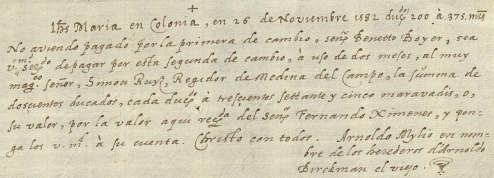 +
Ihs Maria en Colonia, en 26 de Noviembre 1582 ducos 200 à 375. mrs
No aviendo pagado por la primera de cambio, señor Benetto Boyer, sea
de pagar por esta segunda de cambio, à uso de dos meses, al muy
magco señor, Simon Ruyz, Regidor de Medina del Campo, la summa de
doscuentos ducados, cada duco à trescuentos settante y cinco maravadis, o,
su valor, por la valor aqui del Señor Fernando Ximenes, y pon-
ga los v. m. à su cuenta. Christo con todos. Arnoldo Mylio en nom-
bre de los herederos d'Arnoldo
Birckman el viejo.